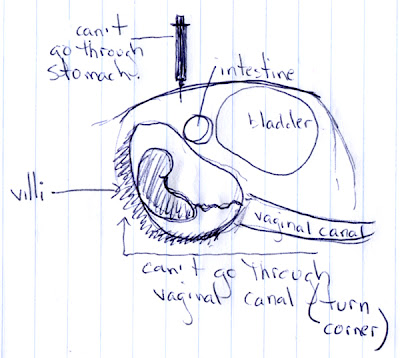 can't
go through
stomach.
intestine
bladder
villi
vaginal canal
can't go through
vaginal canal (turn
corner)